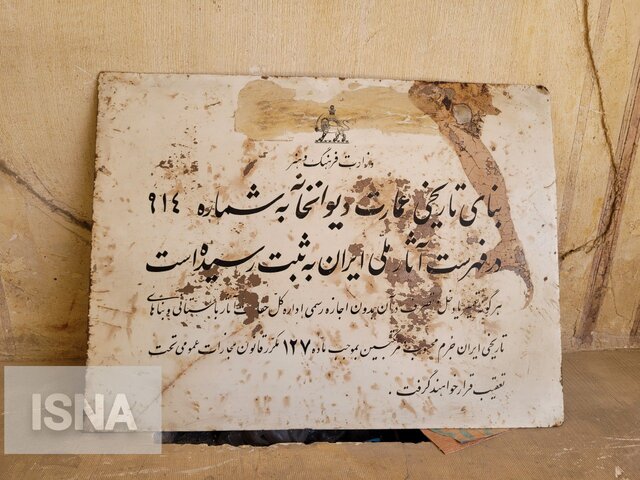 وزارت فرهنگ و هنر
بنای تاریخی عمارت دیوانخانه به شماره ۹۱٤
در فهرست آثار ملی ایران به ثبت رسیده است
هر گونه بدون اجازه رسمی اداره کل باستانی و بناهای
تاریخی ایران جرم مرتکبین بموجب ماده ۱۲۷ مکرر قانون مجازات عمومی تحت
تعقیب قرار خواهند گرفت .
ISNA